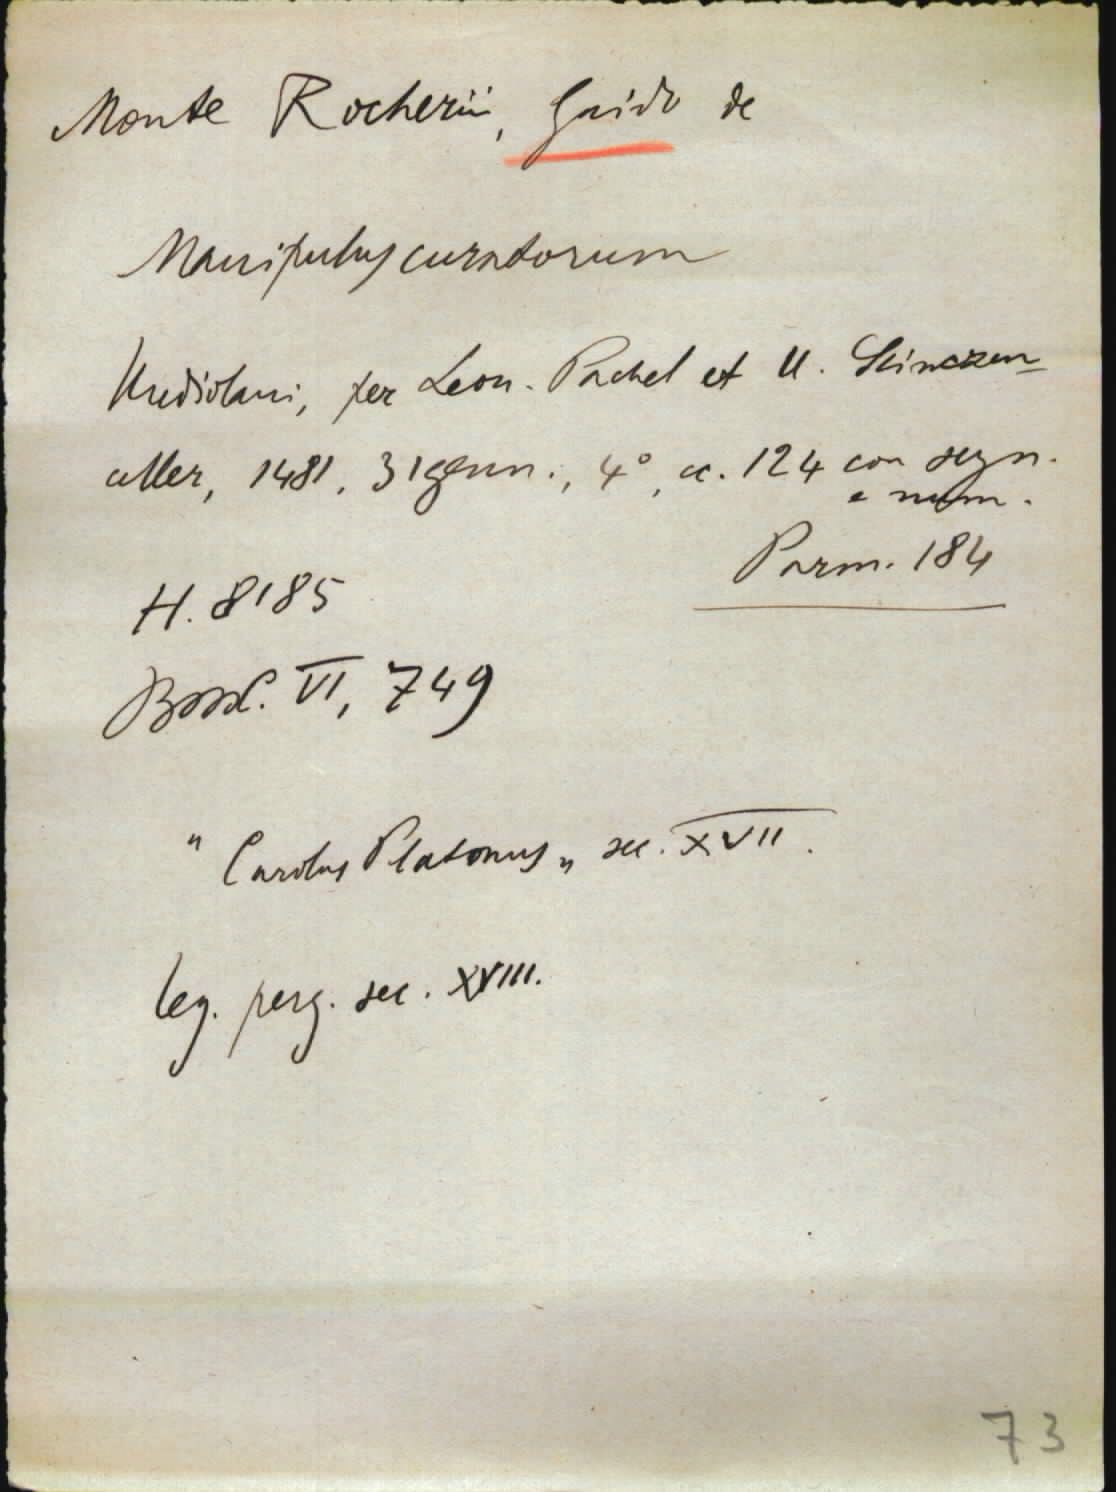 Monte Rocherii, Guido de
Manipulus curatorum
Mediolani, per Leon. Pachel et U. Scinczen-
celler, 1481, 31 genn., 4°, cc. 124 con segn.
e num.
Parm. 184
H. 8185
BMC. VI, 749
"Carolus Platonus„ sec. XVII.
leg. perg. sec. XVIII.
73